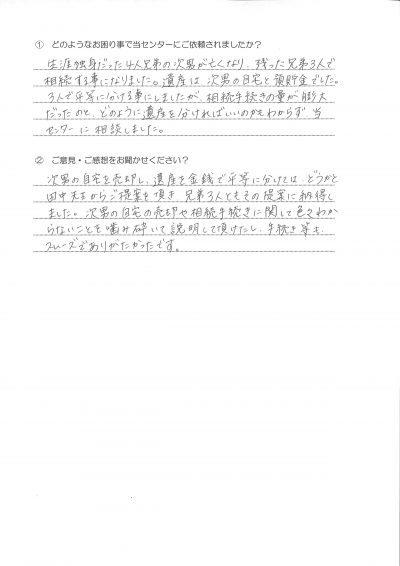 ① どのようなお困り事で当センターにご依頼されましたか？
生涯独身だった4人兄弟の次男が亡くなり、残った兄弟3人で
相続する事になりました。遺産は、次男の自宅と預貯金でした。
3人で平等に分ける事にしましたが、相続手続きの量が膨大
だったのと、どのように遺産を分ければいいのかもわからず、当
センターに相談しました。
② ご意見・ご感想をお聞かせください？
次男の自宅を売却し、遺産を金銭で平等に分けては、どうかと
田中先生からご提案を頂き、兄弟3人ともその提案に納得し
ました。次男の自宅の売却や相続手続きに関して色々わか
らないことを噛み砕いて説明して頂けたし、手続き等も、
スムーズでありがたかったです。